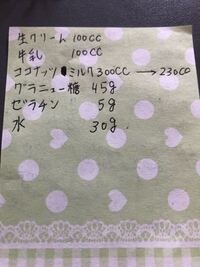 生クリーム 100CC
牛乳 100CC
ココナッツミルク300CC → 230CC
グラニュー糖 45g
ゼラチン 5g
水 30g